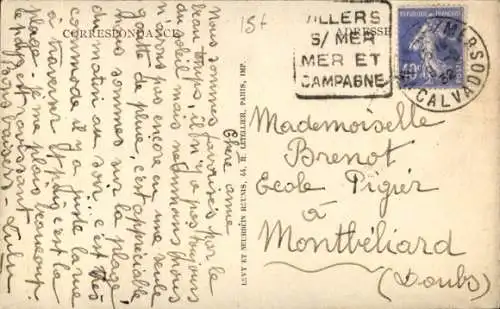 CORRESPONDANCE
Chère amie
Nous sommes favorisés par le
beau temps, il n'y a pas toujours
du soleil mais néanmoins nous
n'avons pas encore eu une seule
goutte de pluie, c'est appréciable
nous sommes sur la plage
du matin au soir c'est très
commode il y a juste la rue
à traverser et c'est la
plage - je me plais beaucoup.
le pays est ravissant
Bons baisers - Lulu
LEVY ET NEURDEIN RÉUNIS, 44, R. LETELLIER, PARIS, IMP.
15f
ADRESSE
VILLERS
S/ MER
MER ET
CAMPAGNE
RÉPUBLIQUE FRANÇAISE
40c
POSTES
MER
CALVADOS
Mademoiselle
Brenot
Ecole Pigier
à
Montbéliard
(Doubs)